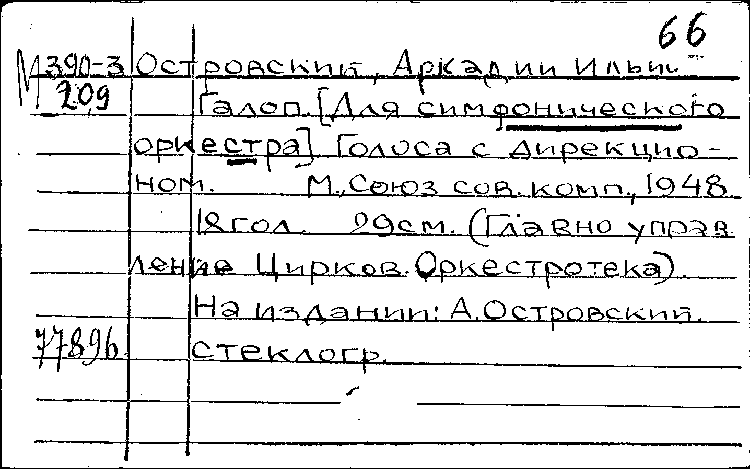 66
М390-3 Островский, Аркадий Ильич
209 Галоп. [Для симфонического
оркестра] Голоса с дирекцио-
ном. М., Союз сов. комп., 1948.
18 гол. 29 см. (Главно управ
ление Цирков. Оркестротека)
На издании: А. Островский.
77896 стеклогр.